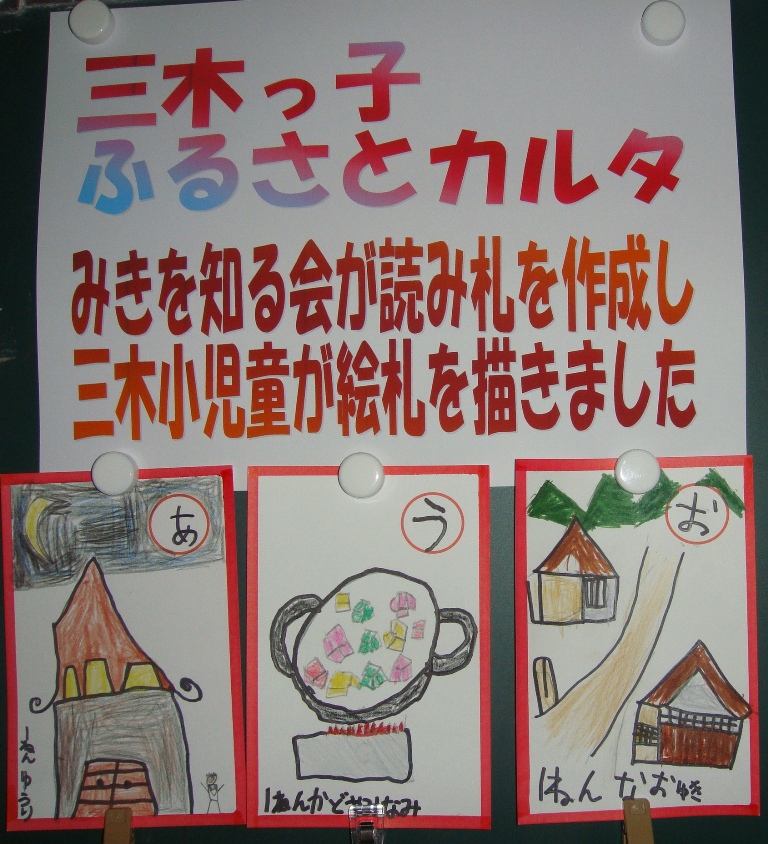 三木っ子
ふるさとカルタ
みきを知る会が読み札を作成し
三木小児童が絵札を描きました
あ
う
お
1ねん なおゆき